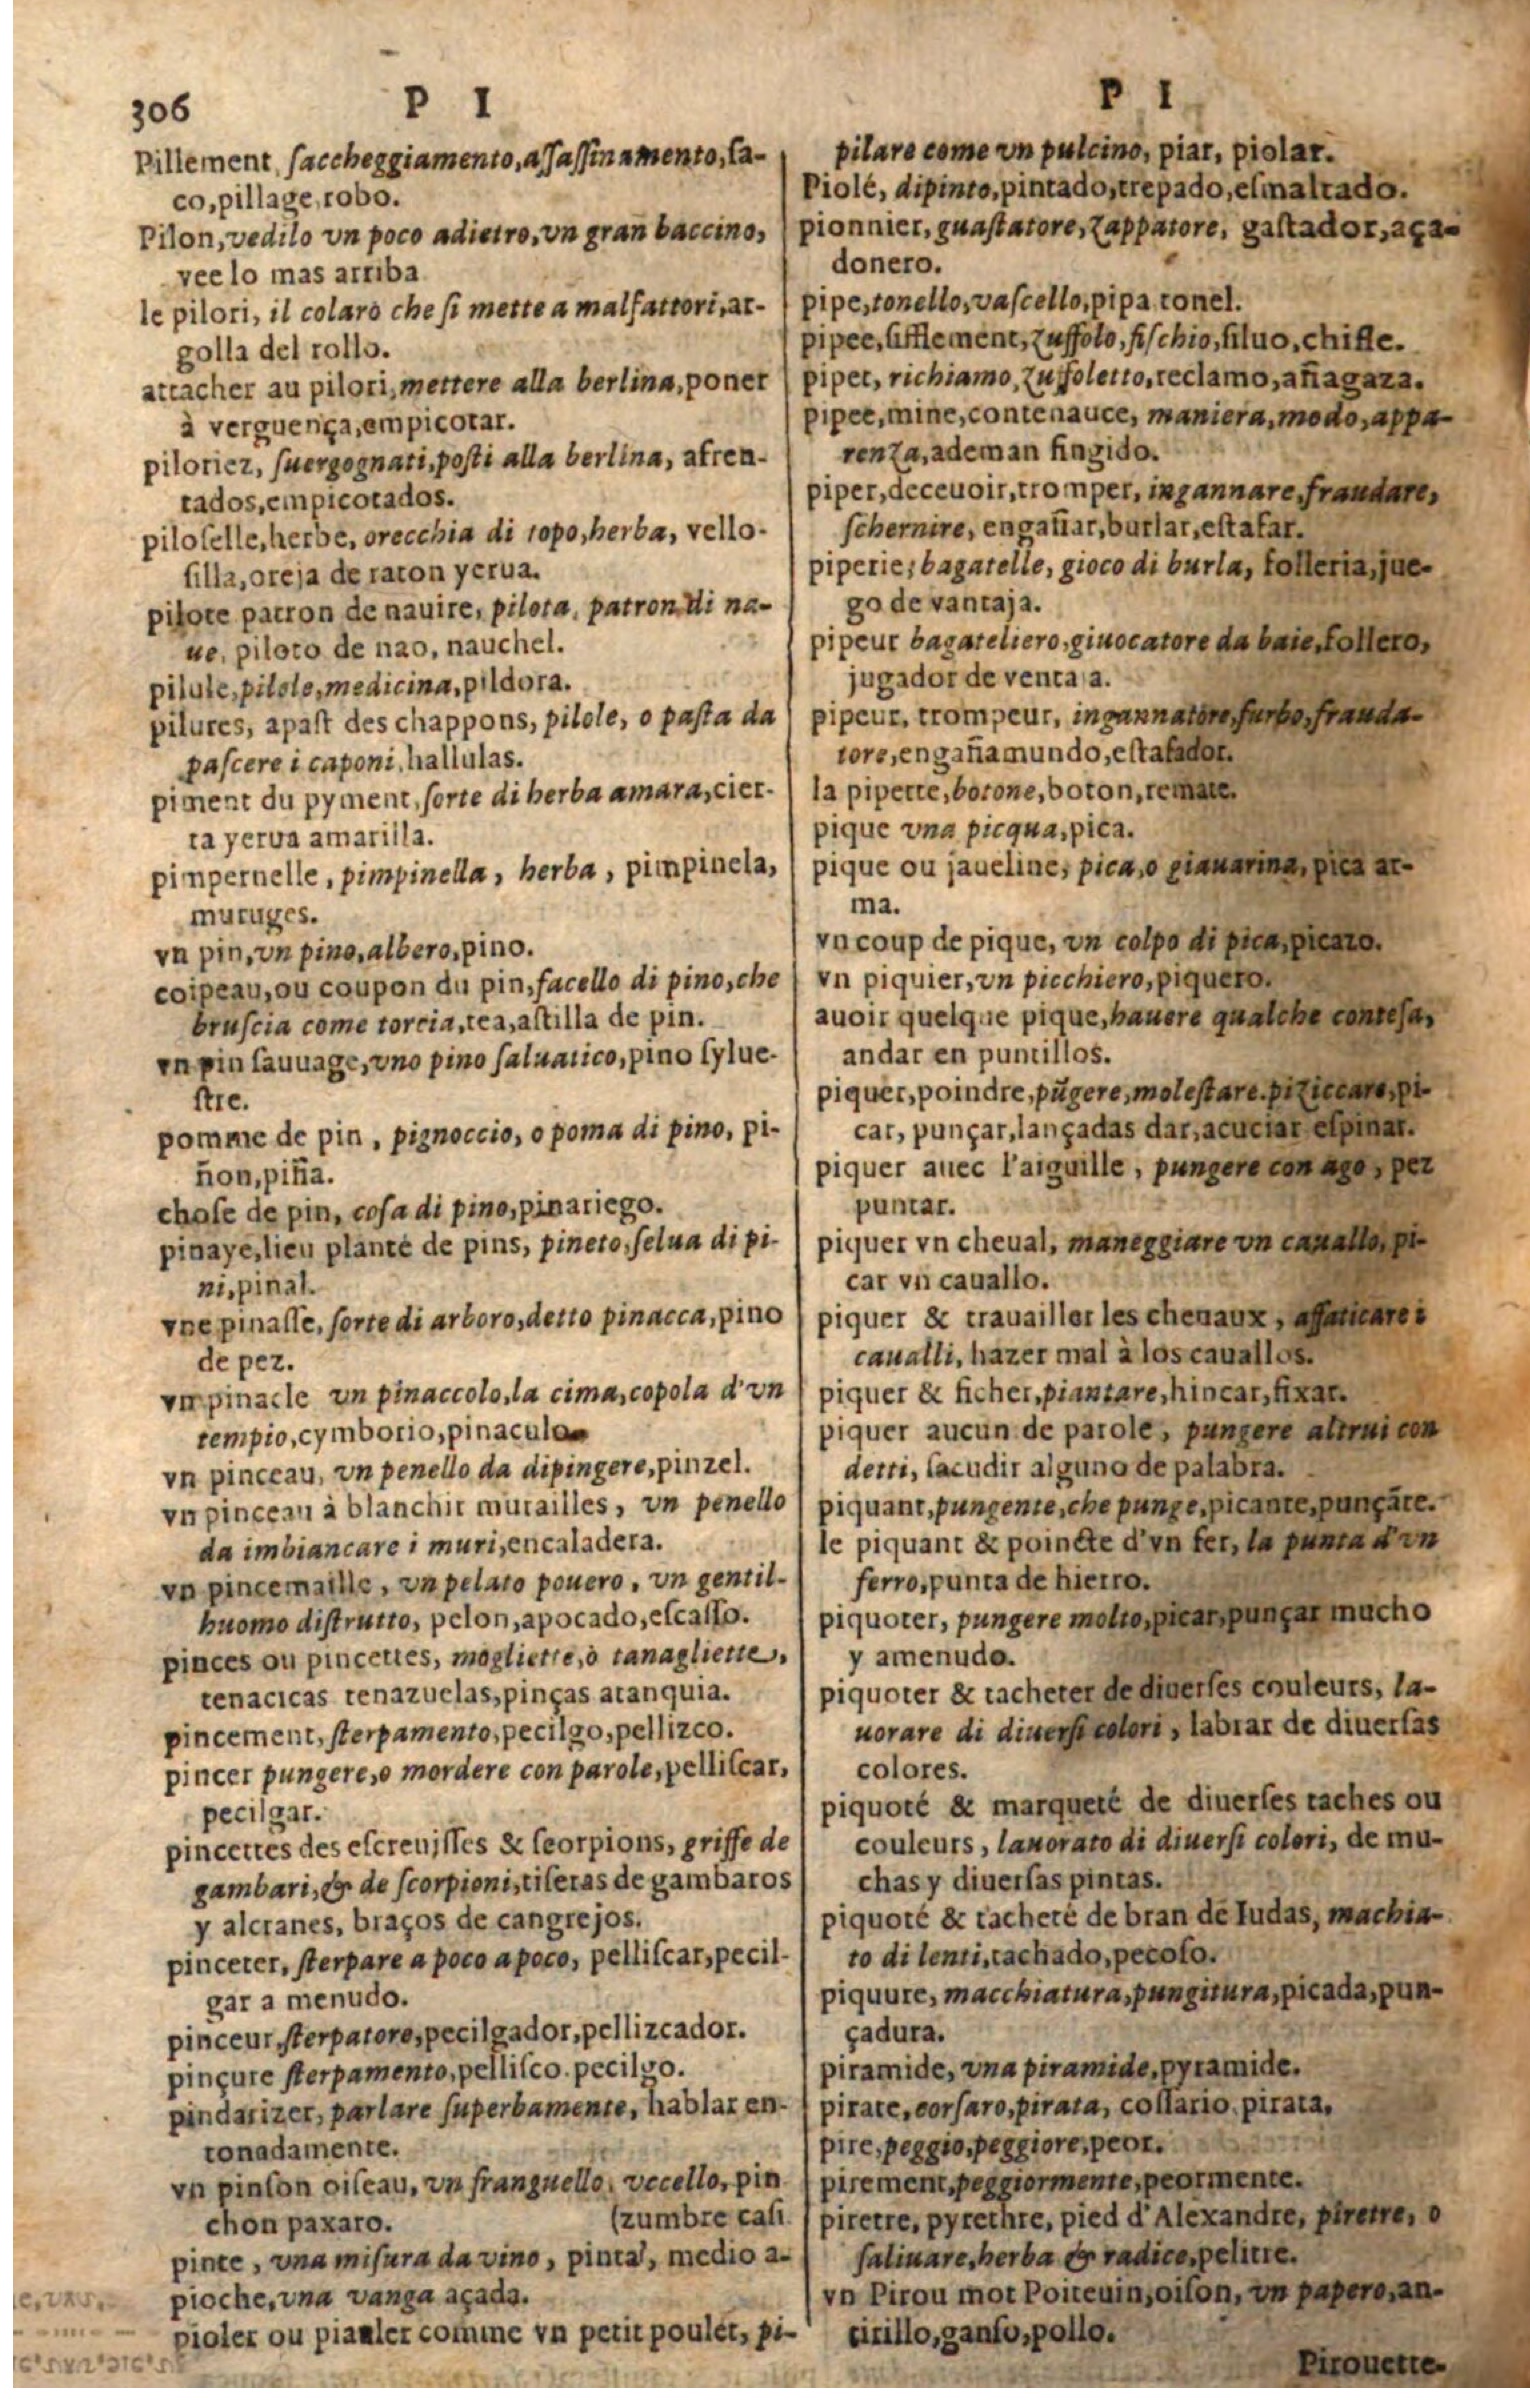 306
P I
Pillement, saccheggiamento, assassinamento, sa-
co, pillage, robo.
Pilon, vedilo vn poco adietro, vn gran baccino,
vee lo mas arriba
le pilori, il colaro che si mette a malfattori, ar-
golla del rollo.
attacher au pilori, mettere alla berlina, poner
à verguença, empicotar.
piloriez, suergognati, posti alla berlina, afren-
tados, empicotados.
piloselle, herbe, orecchia di topo, herba, vello-
silla, oreja de raton yerua.
pilote patron de nauire, pilota, patron di na-
ue, piloto de nao, nauchel.
pilule, pilole, medicina, pildora.
pilures, apast des chappons, pilole, o pasta da
pascere i caponi, hallulas.
piment du pyment, sorte di herba amara, cier-
ta yerua amarilla.
pimpernelle, pimpinella, herba, pimpinela,
muruges.
vn pin, vn pino, albero, pino.
coipeau, ou coupon du pin, facello di pino, che
bruscia come torcia, tea, astilla de pin.
vn pin sauuage, vno pino saluatico, pino sylue-
stre.
pomme de pin, pignoccio, o poma di pino, pi-
ñon, piña.
chose de pin, cosa di pino, pinariego.
pinaye, lieu planté de pins, pineto, selua di pi-
ni, pinal.
vne pinasse, sorte di arboro, detto pinacca, pino
de pez.
vn pinacle vn pinaccolo, la cima, copola d'vn
tempio, cymborio, pinaculo
vn pinceau, vn penello da dipingere, pinzel.
vn pinceau à blanchir murailles, vn penello
da imbiancare i muri, encaladera.
vn pincemaille, vn pelato pouero, vn gentil-
huomo distrutto, pelon, apocado, escasso.
pinces ou pincettes, mogliette, ò tanagliette,
tenacicas tenazuelas, pinças atanquia.
pincement, sterpamento, pecilgo, pellizco.
pincer pungere, o mordere con parole, pelliscar,
pecilgar.
pincettes des escreuisses & scorpions, griffe de
gambari, & de scorpioni, tiseras de gambaros
y alcranes, braços de cangrejos.
pinceter, sterpare a poco a poco, pelliscar, pecil-
gar a menudo.
pinceur, sterpatore, pecilgador, pellizcador.
pinçure sterpamento, pellisco. pecilgo.
pindarizer, parlare superbamente, hablar en-
tonadamente.
vn pinson oiseau, vn franguello, vccello, pin
chon paxaro. (zumbre casi
pinte, vna misura da vino, pinta, medio a-
pioche, vna vanga açada.
pioler ou piauler comme vn petit poulet, pi-
P I
pilare come vn pulcino, piar, piolar.
Piolé, dipinto, pintado, trepado, esmaltado.
pionnier, guastatore, zappatore, gastador, aça-
donero.
pipe, tonello, vascello, pipa tonel.
pipee, sifflement, zuffolo, fischio, siluo, chifle.
pipet, richiamo, zuffoletto, reclamo, añagaza.
pipee, mine, contenauce, maniera, modo, appa-
renza, ademan fingido.
piper, deceuoir, tromper, ingannare, fraudare,
schernire, engañar, burlar, estafar.
piperie, bagatelle, gioco di burla, folleria, jue-
go de vantaja.
pipeur bagateliero, giuocatore da baie, follero,
jugador de venta a.
pipeur, trompeur, ingannatore, furbo, frauda-
tore, engañamundo, estafador.
la pipette, botone, boton, remate.
pique vna picqua, pica.
pique ou jaueline, pica, o giauarina, pica ar-
ma.
vn coup de pique, vn colpo di pica, picazo.
vn piquier, vn picchiero, piquero.
auoir quelque pique, hauere qualche contesa,
andar en puntillos.
piquer, poindre, pũgere, molestare. pizziccare, pi-
car, punçar, lançadas dar, acuciar espinar.
piquer auec l'aiguille, pungere con ago, pez
puntar.
piquer vn cheual, maneggiare vn cauallo, pi-
car vn cauallo.
piquer & trauailler les cheuaux, affaticare i
caualli, hazer mal à los cauallos.
piquer & ficher, piantare, hincar, fixar.
piquer aucun de parole, pungere altrui con
detti, sacudir alguno de palabra.
piquant, pungente, che punge, picante, punçãte.
le piquant & poincte d'vn fer, la punta d'vn
ferro, punta de hierro.
piquoter, pungere molto, picar, punçar mucho
y amenudo.
piquoter & tacheter de diuerses couleurs, la-
uorare di diuersi colori, labrar de diuersas
colores.
piquoté & marqueté de diuerses taches ou
couleurs, lauorato di diuersi colori, de mu-
chas y diuersas pintas.
piquoté & tacheté de bran de Iudas, machia-
to di lenti, tachado, pecoso.
piquure, macchiatura, pungitura, picada, pun-
çadura.
piramide, vna piramide, pyramide.
pirate, corsaro, pirata, cossario pirata.
pire, peggio, peggiore, peor.
pirement, peggiormente, peormente.
piretre, pyrethre, pied d'Alexandre, piretre, o
saliuare, herba & radice, pelitre.
vn Pirou mot Poiteuin, oison, vn papero, an-
tirillo, ganso, pollo.
Pirouette-